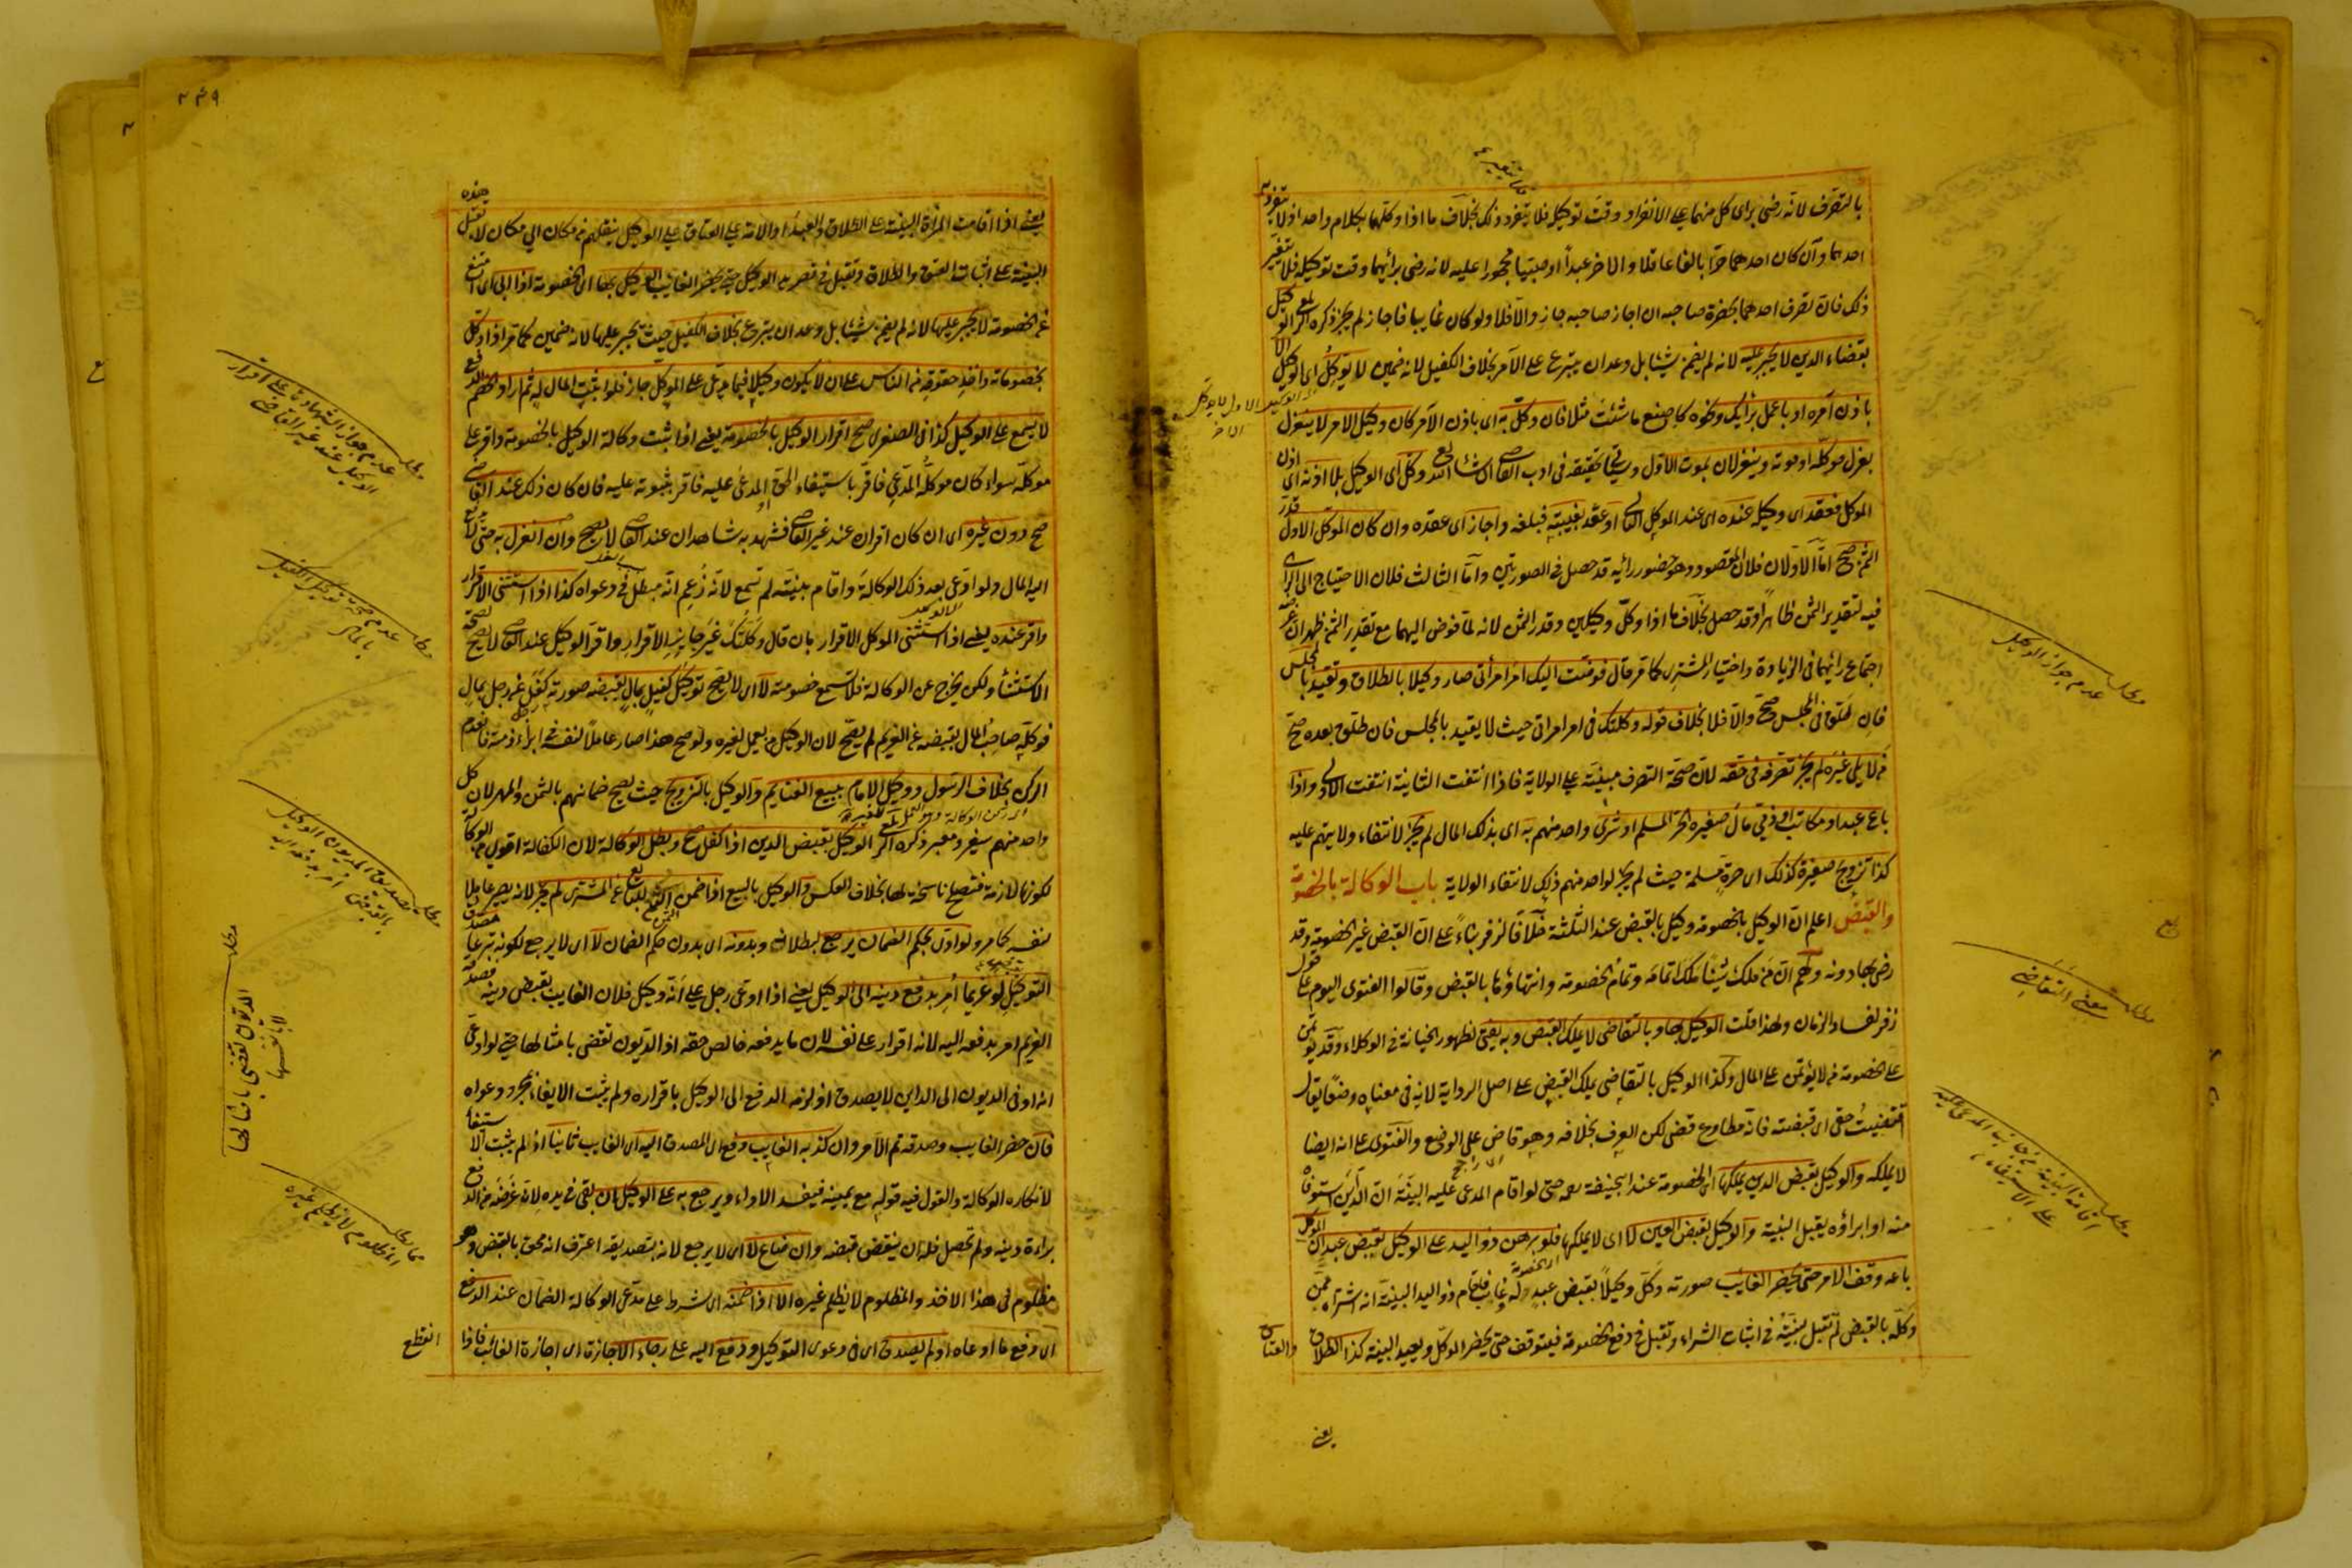 بالتصرف لانه رضى براى كل منهما على الانفراد وقت توكيله فلا يتغير ذلك بخلاف ما اذا وكلهما بكلام واحد اذ لا يتفرد به
احدهما وان كان احدهما حرا بالغا عاقلا والاخر عبداً او صبيا محجورا عليه لانه رضى برأيهما وقت توكيله فلا يتغير
ذلك فان تصرف احدهما بحضرة صاحبه ان اجاز صاحبه جاز والا فلا ولو كان غايبا فاجاز لم يجز ذكره الوكيل
بقضاء الدين لا يجبر عليه لانه لم يضمن شيئا بل وعد ان يتبرع على الآمر بخلاف الكفيل لانه ضمين لا يوكل اى الوكيل الا
باذن آمره او باعمل برأيك ونحوه كاصنع ما شئت مثلا فان وكل به اى باذن الآمر كان وكيل الامر لا ينعزل
بعزل موكله او موته وينعزلان بموت الاول وسيأتى تحقيقه فى ادب القاضى ان شاء الله وكل اى الوكيل بلا اذنه اى اذن
الموكل فعقد اى وكيله عنده اى عند الموكل الثانى او عقد بغيبته فبلغه واجاز اى عقده وان كان الموكل الاول قدر
الثمن صح اما الاولان فلان المقصود وهو حضور رائيه قد حصل فى الصورتين واما الثالث فلان الاحتياج الى الراى
فيه لتقدير الثمن ظاهراً وقد حصل بخلاف ما اذا وكل وكيلين وقدر الثمن لانه لما فوض اليهما مع تقدير الثمن ظهر ان غرضه
اجتماع رائيهما فى الزيادة واختيار المشترى كما مر قال فوضت اليك امر امرأتى صار وكيلا بالطلاق وتقيد بالمجلس
فان طلق فى المجلس صح والا فلا بخلاف قوله وكلتك فى امر امراتى حيث لا يقيد بالمجلس فان طلق بعده صح
من لا يلى غيره لم يجز تصرفه فى حقه لان صحة التصرف مبنية على الولاية فاذا انتفت الثانية انتفت الاولى واذا
باع عبد او مكاتب او ذمى مال صغيره الحر المسلم او شرى واحد منهم به اى بذلك المال لم يجز لانتفاء ولايتهم عليه
كذا تزويج صغيرة كذلك اى حرة مسلمة حيث لم يجز لواحد منهم ذلك لانتفاء الولاية باب الوكالة بالخصومة
والقبض اعلم ان الوكيل بالخصومة وكيل بالقبض عند الثلثة خلافا لزفر بناءً على ان القبض غير الخصومة وقد
رضى بها دونه ولهم ان من ملك شيئا ملك اتمامه وتمام الخصومة وانتهاؤها بالقبض وقالوا الفتوى اليوم على قول
زفر لفساد الزمان ولهذا قلت الوكيل بها وبالتقاضى لا يملك القبض وبه يفتى لظهور الخيانة فى الوكلاء وقد يؤتمن
على الخصومة من لا يؤتمن على المال وكذا الوكيل بالتقاضى يملك القبض على اصل الرواية لانه فى معناه وضعا يقال
اقتضيت حقى اى قبضته فانه مطاوع قضى لكن العرف بخلافه وهو قاض على الوضع والفتوى على انه ايضا
لا يملكه والوكيل بقبض الدين يملكها اى الخصومة عند ابى حنيفة رحمه حتى لو اقام المدعى عليه البينة ان الداين استوفاه
منه او ابراؤه يقبل البينة والوكيل بقبض العين لا اى لا يملكها فلو برهن ذو اليد على الوكيل بقبض عبد ان الموكل
باعه وقف الامر حتى يحضر الغائب صورته وكل وكيلاً بقبض عبد له غايب فاقام ذو اليد البينة انه اشتراه ممن
وكله بالقبض لم تقبل بينته فى اثبات الشراء وتقبل فى دفع الخصومة فيتوقف حتى يحضر الموكل ويعيد البينة كذا الطلاق والعتاق
يعنى
مطلب عدم جواز التوكيل
مطلب معنى التقاضى
مطلب اقامة البينة من جانب المدعى عليه
على الاستيفاء
٢٤٩
يعنى اذا اقامت المرأة البينة على الطلاق والعبد او الامة على العتاق على الوكيل بنقلهم من مكان الى مكان لا تقبل هذه
البينة على اثبات العتق والطلاق وتقبل فى قصر يد الوكيل حتى يحضر الغايب الوكيل بها اى الخصومة اذا ابى اى امتنع
عن الخصومة لا يجبر عليها لانه لم يضمن شيئا بل وعد ان يتبرع بخلاف الكفيل حيث يجبر عليها لانه ضمين كما مر اذا وكل
بخصوماته واخذ حقوقه من الناس على ان لا يكون وكيلا فيما يدعى على الموكل جاز فلو اثبت المال له ثم اراد الخصم الدفع
لا يسمع على الوكيل كذا فى الصغرى صح اقرار الوكيل بالخصومة يعنى اذا ثبت وكالة الوكيل بالخصومة واقر على
موكله سواء كان موكله المدعى فاقر باستيفاء الحق او المدعى عليه فاقر بثبوته عليه فان كان ذلك عند القاضى
صح دون غيره اى ان كان اقراره عند غير القاضى فشهد به شاهدان عند القاضى لا يصح وان انعزل به حتى لا يدفع
اليه المال ولو ادعى بعد ذلك الوكالة واقام بينته لم تسمع لانه زعم انه مبطل فى دعواه كذا اذا استثنى الاقرار
واقر عنده يعنى اذا استثنى الموكل الاقرار بان قال وكلتك غير جايز الاقرار واقر الوكيل عند القاضى لا يصح لصحة
الاستثناء ولكن يخرج عن الوكالة فلا تسمع خصومته لا اى لا يصح توكيل كفيل بمال بقبضه صورته كفل عن رجل بمال
فوكله صاحب المال بقبضه عن الغريم لم يصح لان الوكيل من يعمل لغيره ولو صح هذا صار عاملا لنفسه فى ابراء ذمته فانعدم
الركن بخلاف الرسول ووكيل الامام ببيع الغنايم والوكيل بالتزويج حيث يصح ضمانهم بالثمن والمهر لان كل
واحد منهم سفير ومعبر ذكره الوكيل بقبض الدين اذا كفل صح وبطل الوكالة لان الكفالة اقوى من الوكالة
لكونها لازمة فتصلح ناسخة لها بخلاف العكس والوكيل بالبيع اذا ضمن الثمن للبايع عن المشترى لم يجز لانه يصير عاملا
لنفسه كما مر ولو ادى بحكم الضمان يرجع لبطلانه وبدونه اى بدون حكم الضمان لا اى لا يرجع لكونه تبرعا مصدق
التوكيل لو غريما امر بدفع دينه الى الوكيل يعنى اذا ادعى رجل على انه وكيل فلان الغايب بقبض دينه فصدقه
الغريم امر بدفعه اليه لانه اقرار على نفسه لان ما يدفعه خالص حقه اذ الديون تقضى بامثالها حتى لو ادعى
انه اوفى الديون الى الداين لا يصدق اذ لزمه الدفع الى الوكيل باقراره ولم يثبت الايفاء بمجرد دعواه
فان حضر الغايب وصدقه تم الامر وان كذبه الغايب دفع اى المصدق اليه اى الغايب ثانيا اذ لم يثبت الاستيفاء
لانكاره الوكالة والقول فيه قوله مع يمينه فيفسد الاداء ويرجع به على الوكيل ان بقى فى يده لان غرضه من الدفع
براءة ذمته ولم تحصل فله ان ينقض قبضه وان ضاع لا اى لا يرجع لانه بتصديقه اعترف انه محق بالقبض وهو
مظلوم فى هذا الاخذ والمظلوم لا يظلم غيره الا اذا ضمنه اى شرط على مدعى الوكالة الضمان عند الدفع
اى دفع ما ادعاه او لم يصدق اى فى دعوى التوكيل ودفع اليه على رجاء الاجازة اى اجازة الغائب فاذا انقطع
مطلب عدم جواز الشهادة على اقرار
الوكيل عند غير القاضى
مطلب عدم صحة توكيل الكفيل
بالمال
مطلب تصديق المديون الوكيل
بالقبض امر بدفعه اليه
مطلب الديون تقضى بامثالها
لا بانفسها
مطلب المظلوم لا يظلم غيره